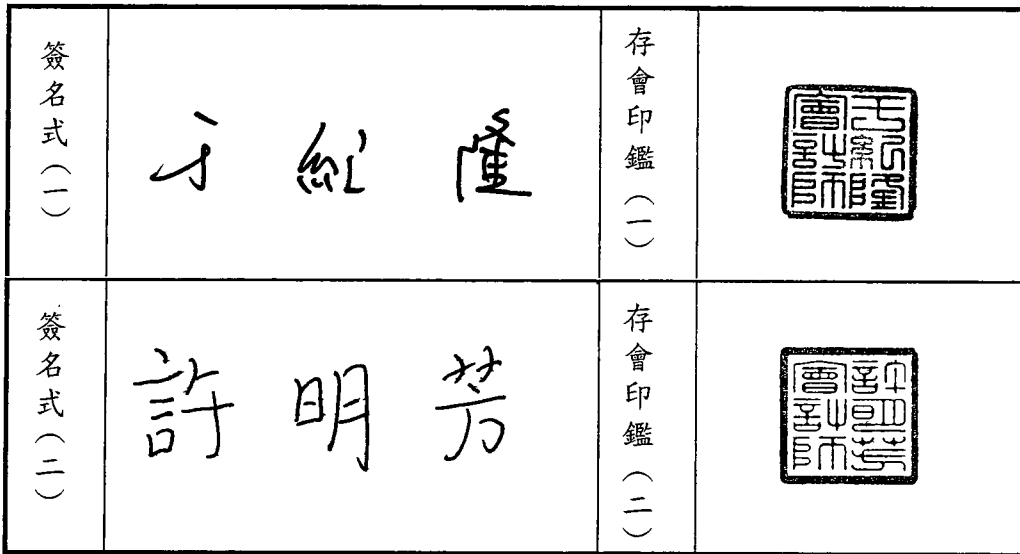 簽名式(一)
于紀隆
存會印鑑(一)
于紀隆
會計師
簽名式(二)
許明芳
存會印鑑(二)
許明芳
會計師